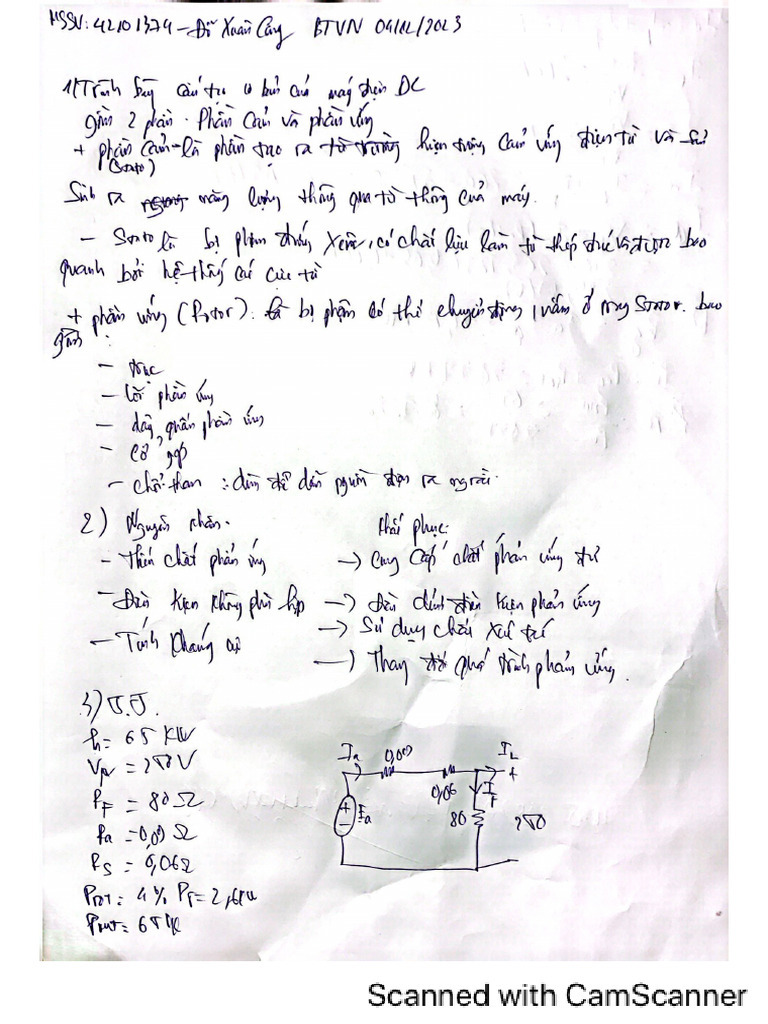 MSSV: 42101374 - Đỗ Xuân Cảng BTVN 04/12/2023
1) Trình bày cấu tạo cơ bản của máy điện DC
gồm 2 phần. Phần Cảm và phần ứng
+ phần Cảm - là phần tạo ra từ trường hiện tượng Cảm ứng điện từ và sự
(Stato)
Sinh ra năng lượng thông qua từ thông của máy.
- Stato là bộ phận đứng yên, có chất liệu làm từ thép đúc và được bao
quanh bởi hệ thống các cực từ
+ phần ứng (Rotor). là bộ phận có thể chuyển động, nằm ở trong Stator. bao
gồm :
- trục
- lõi phần ứng
- dây quấn phần ứng
- cổ góp
- chổi than : dùng để dẫn nguồn điện ra ngoài.
2) Nguyên nhân. Khắc phục:
- Thiếu chất phản ứng -> Cung cấp chất phản ứng đủ
- Điều kiện không phù hợp -> Điều chỉnh điều kiện phản ứng
-> Sử dụng chất xúc tác
- Tính kháng cự
-> Thay đổi quá trình phản ứng.
3) T.T.
= 65 KW
= 250 V
RF = 80 Ω
Ra = 0,09 Ω
RS = 0,06 Ω
Prot = 4%
Pout = 65 K
Ia 0,09 IL
+
0,06 IF
+ Ea
-
80 250
Scanned with CamScanner